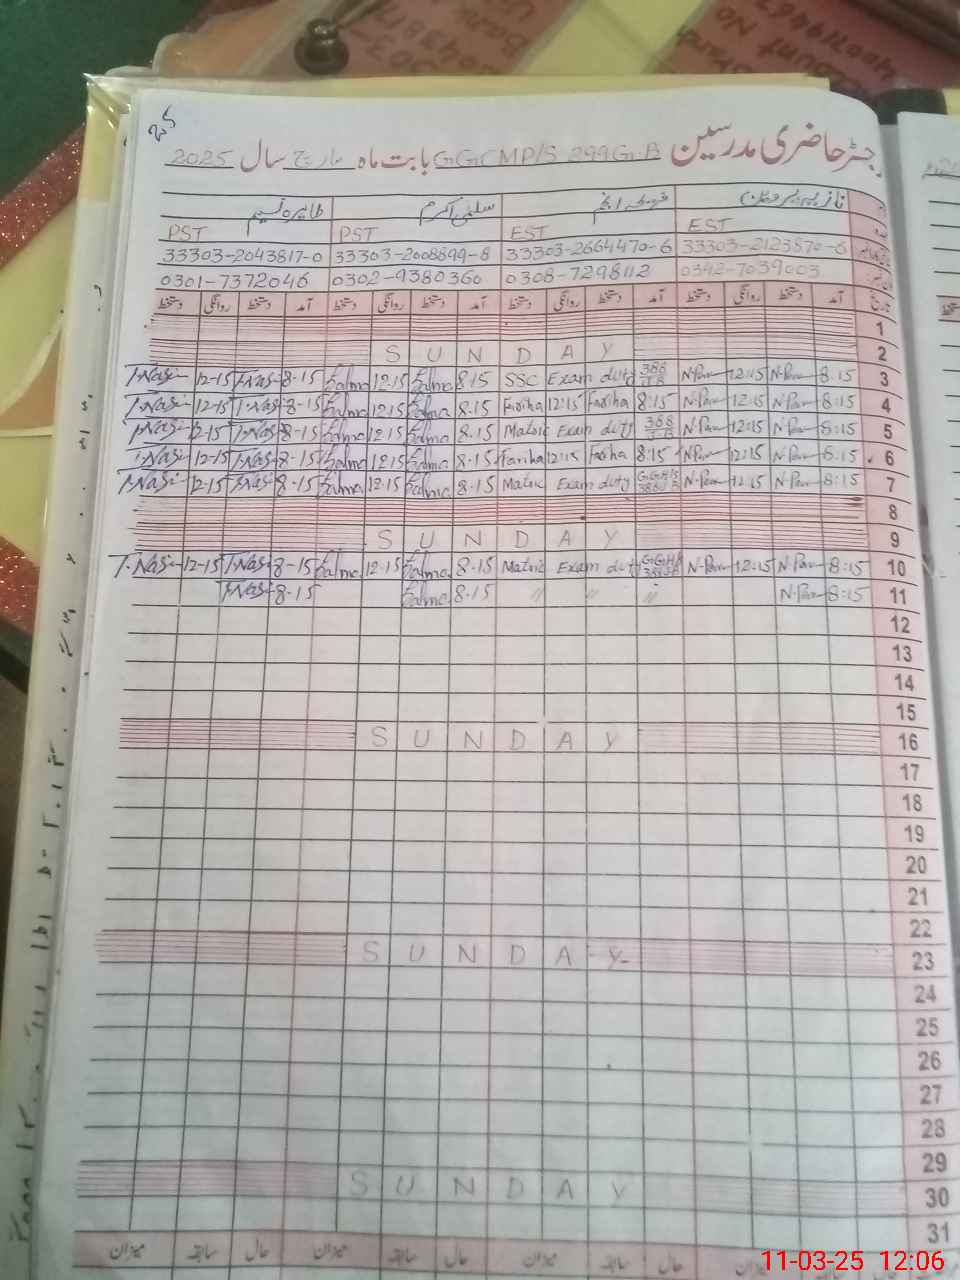 رجسٹر حاضری مدرسین GGCMP/S 299G.B بابت ماہ مارچ سال 2025
نازیہ پروین فریحہ انجم سلمیٰ اکرم طاہرہ نسیم
EST EST PST PST
33303-2123870-6 33303-2664470-6 33303-2008899-8 33303-2043817-0
0342-7039003 0308-7298112 0302-9380360 0301-7372046
تاریخ آمد دستخط روانگی دستخط آمد دستخط روانگی دستخط آمد دستخط روانگی دستخط آمد دستخط روانگی دستخط
1
SUNDAY 2
T-Nasi 12-15 T-Nasi 8-15 Salma 12:15 Salma 8.15 SSC Exam duty 388 J-B N-Par 12:15 N-Par 8:15 3
T-Nasi 12-15 T-Nasi 8-15 Salma 12:15 Salma 8.15 Fariha 12:15 Fariha 8:15 N-Par 12:15 N-Par 8:15 4
T-Nasi 12-15 T-Nasi 8-15 Salma 12:15 Salma 8.15 Matric Exam duty 388 J-B N-Par 12:15 N-Par 8:15 5
T-Nasi 12-15 T-Nasi 8-15 Salma 12:15 Salma 8.15 Fariha 12:15 Fariha 8:15 N-Par 12:15 N-Par 8:15 6
T-Nasi 12-15 T-Nasi 8-15 Salma 12:15 Salma 8.15 Matric Exam duty 388 J-B N-Par 12:15 N-Par 8:15 7
8
SUNDAY 9
T-Nasi 12-15 T-Nasi 8-15 Salma 12:15 Salma 8.15 Matric Exam duty N-Par 12:15 N-Par 8:15 10
T-Nasi 8-15 Salma 8.15 〃 〃 〃 N-Par 8:15 11
12
13
14
15
SUNDAY 16
17
18
19
20
21
22
SUNDAY 23
24
25
26
27
28
29
SUNDAY 30
31
حال سابقہ میزان حال سابقہ میزان حال سابقہ میزان
11-03-25 12:06